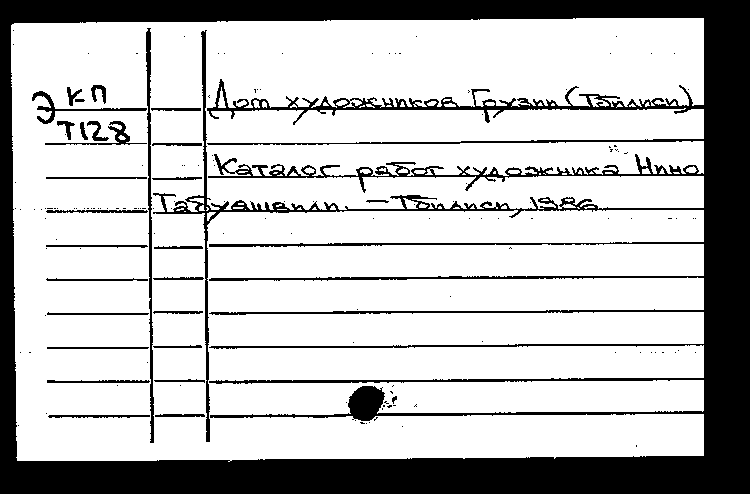 Э КП Дом художников Грузии (Тбилиси)
Т128
Каталог работ художника Нино
Табуашвили. – Тбилиси, 1986